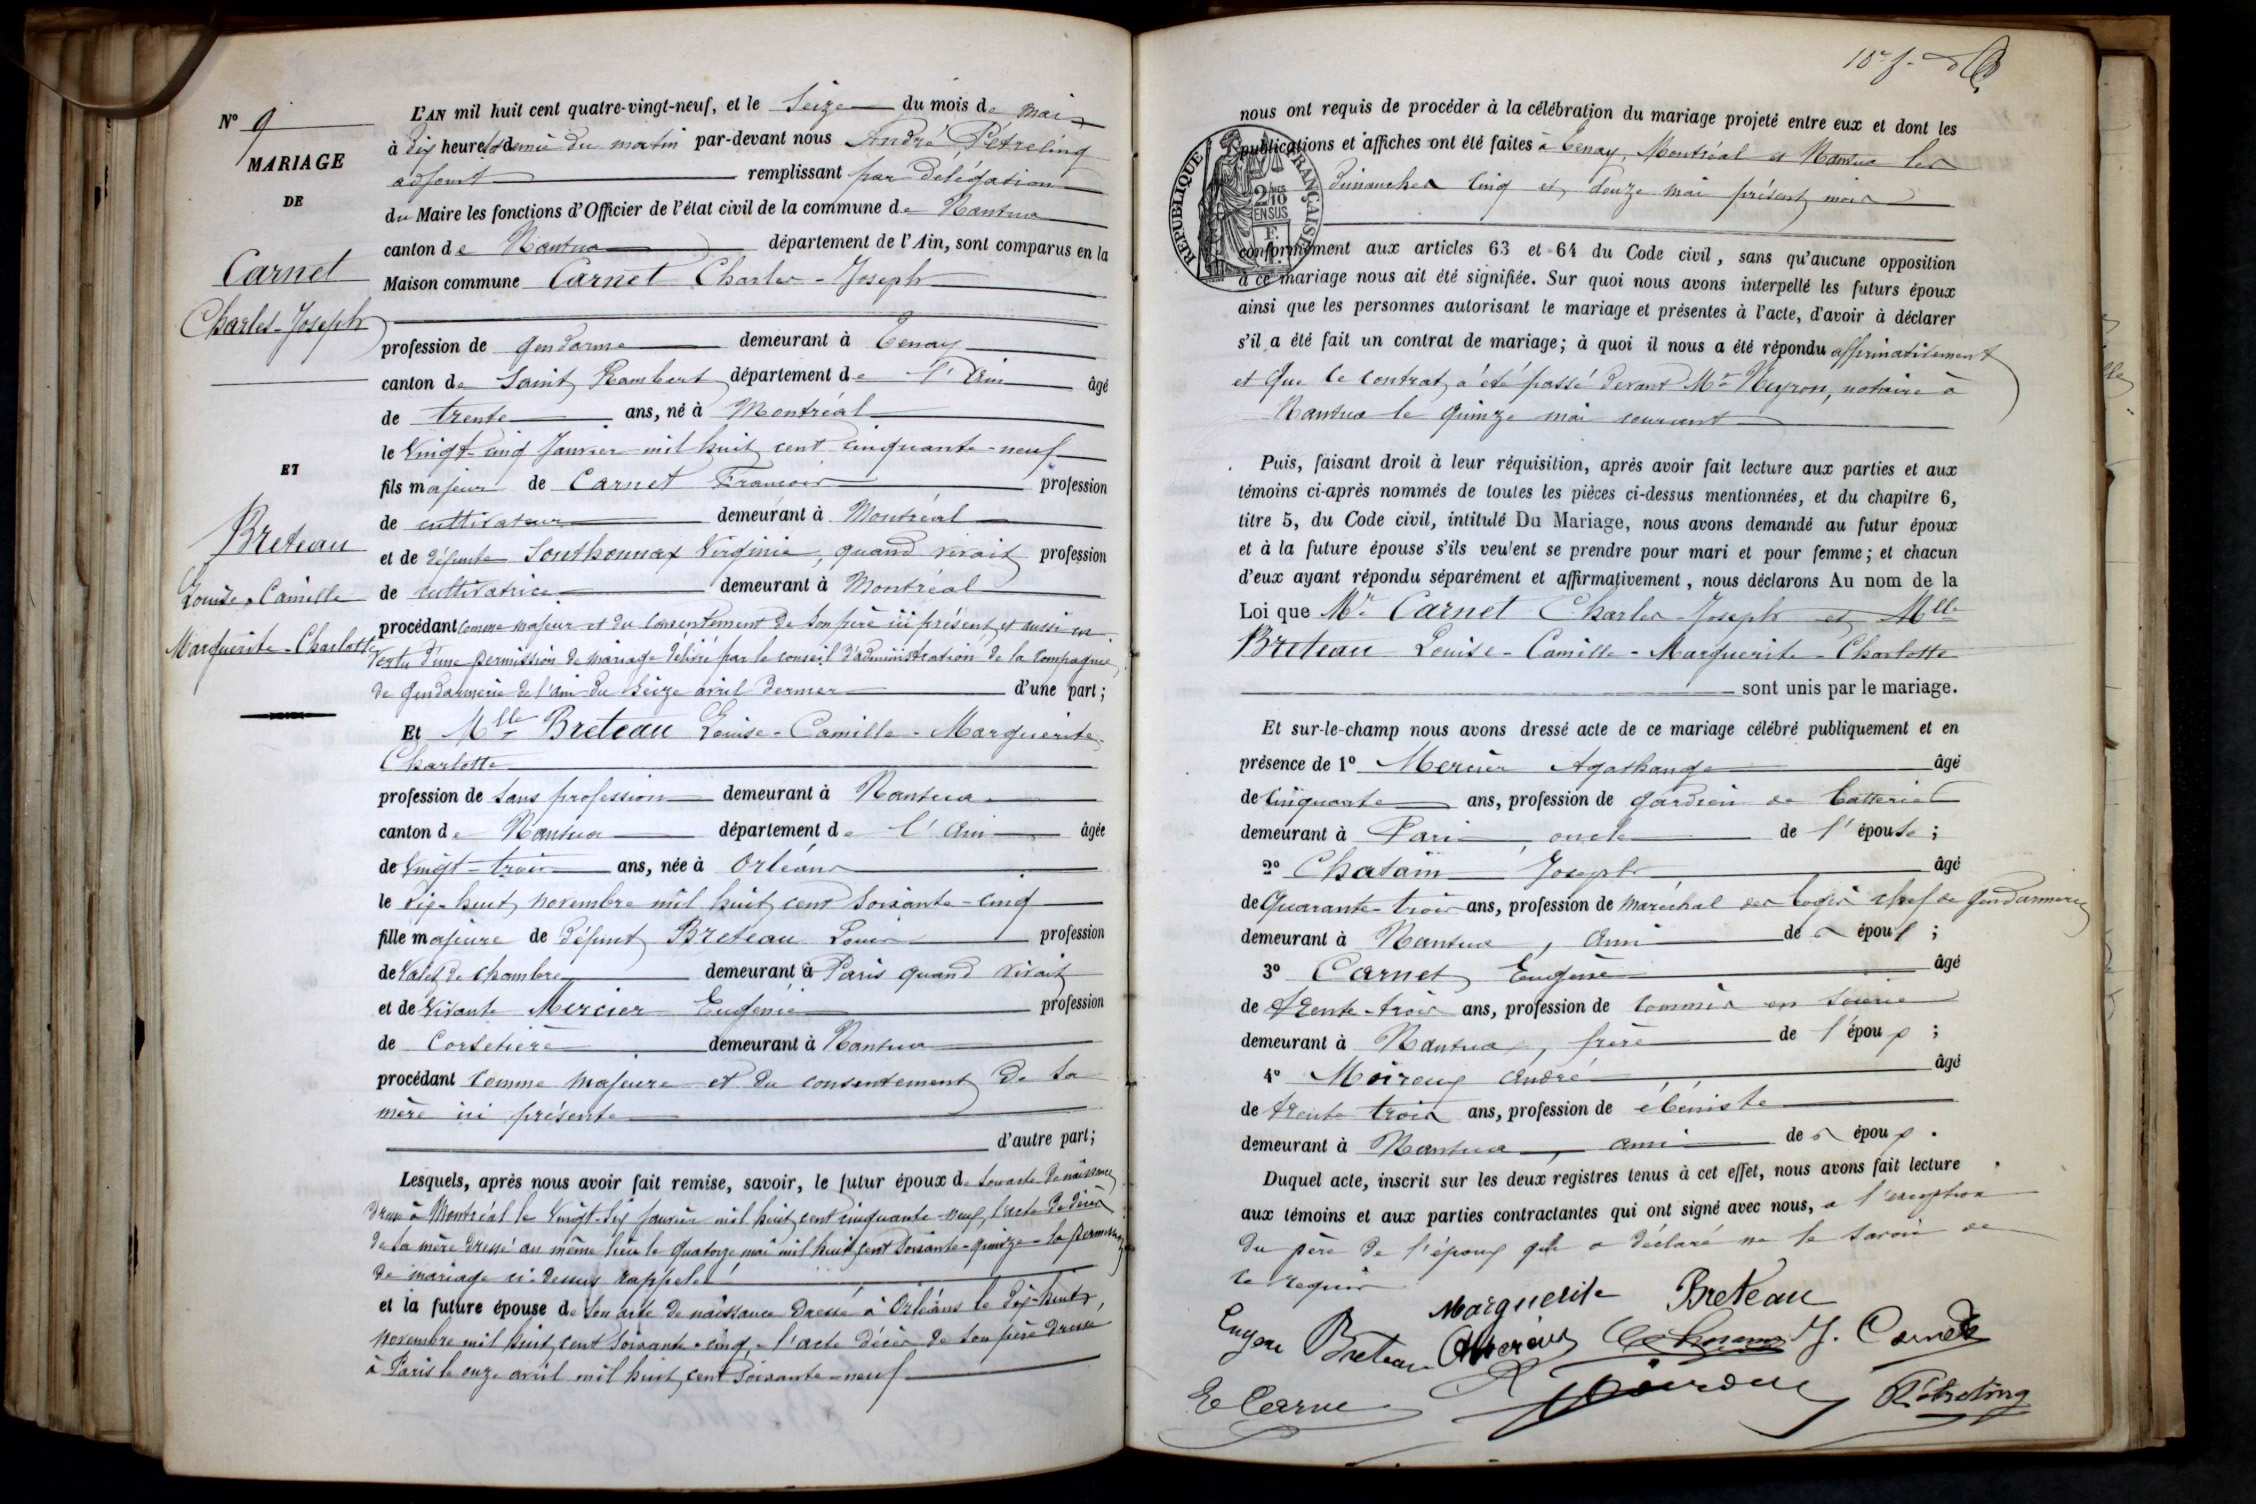 N° 9
MARIAGE
DE
Carnet
Charles-Joseph
ET
Breteau
Louise-Camille
Marguerite-Charlotte
L'AN mil huit cent quatre-vingt-neuf, et le Seize du mois de mai
à Dix heures & demie du matin par-devant nous André Pétreling
adjoint remplissant par délégation
du Maire les fonctions d'Officier de l'état civil de la commune de Nantua
canton de Nantua département de l'Ain, sont comparus en la
Maison commune Carnet Charles-Joseph
profession de gendarme demeurant à Tenay
canton de Saint Rambert département de l'Ain âgé
de trente ans, né à Montréal
le Vingt-cinq Janvier mil huit cent cinquante-neuf
fils majeur de Carnet François profession
de cultivateur demeurant à Montréal
et de défunte Southonnax Virginie, quand vivait profession
de cultivatrice demeurant à Montréal
procédant comme majeur et du consentement de son père ici présent et aussi en
vertu d'une permission de mariage délivré par le conseil d'administration de la compagnie
de Gendarmerie de l'ain du Seize avril dernier d'une part;
Et Mlle Breteau Louise-Camille-Marguerite-
Charlotte
profession de sans profession demeurant à Nantua
canton de Nantua département de l'Ain âgée
de Vingt-trois ans, née à Orléans
le dix-huit novembre mil huit cent soixante-cinq
fille majeure de défunt Breteau Louis profession
de Valet de chambre demeurant à Paris quand vivait
et de vivante Mercier Eugénie profession
de Corsetière demeurant à Nantua
procédant comme majeure et du consentement de sa
mère ici présente
d'autre part;
Lesquels, après nous avoir fait remise, savoir, le futur époux de son acte de naissance
dressé à Montréal le Vingt-six janvier mil huit cent cinquante-neuf, l'acte de décès
de sa mère dressé au même lieu le quatorze mai mil huit cent soixante-quinze - la permission
de mariage ci-dessus rappelée
et la future épouse de son acte de naissance dressé à Orléans le dix-huit
novembre mil huit cent soixante-cinq, - l'acte décès de son père dressé
à Paris le onze avril mil huit cent soixante-neuf
nous ont requis de procéder à la célébration du mariage projeté entre eux et dont les
publications et affiches ont été faites à Tenay, Montréal et Nantua les
dimanches cinq et douze mai présent mois
REPUBLIQUE FRANÇAISE
2/10
EN SUS
conformément aux articles 63 et 64 du Code civil, sans qu'aucune opposition
à ce mariage nous ait été signifiée. Sur quoi nous avons interpellé les futurs époux
ainsi que les personnes autorisant le mariage et présentes à l'acte, d'avoir à déclarer
s'il a été fait un contrat de mariage; à quoi il nous a été répondu affirmativement
et que le contrat a été passé devant Mr Neyron, notaire à
Nantua le quinze mai courant
Puis, faisant droit à leur réquisition, après avoir fait lecture aux parties et aux
témoins ci-après nommés de toutes les pièces ci-dessus mentionnées, et du chapitre 6,
titre 5, du Code civil, intitulé Du Mariage, nous avons demandé au futur époux
et à la future épouse s'ils veulent se prendre pour mari et pour femme; et chacun
d'eux ayant répondu séparément et affirmativement, nous déclarons Au nom de la
Loi que Mr Carnet Charles-Joseph et Mlle
Breteau Louise-Camille-Marguerite-Charlotte
sont unis par le mariage.
Et sur-le-champ nous avons dressé acte de ce mariage célébré publiquement et en
présence de 1° Mercier Agathange âgé
de Cinquante ans, profession de gardien de batterie
demeurant à Paris, oncle de l'épouse;
2° Chatain Joseph âgé
de Quarante-trois ans, profession de maréchal des logis chef de gendarmerie
demeurant à Nantua, ami de l'époux;
3° Carnet Eugène âgé
de trente-trois ans, profession de commis en soierie
demeurant à Nantua, frère de l'époux;
4° Moiroux André âgé
de trente trois ans, profession de ébéniste
demeurant à Nantua, ami de l'époux.
Duquel acte, inscrit sur les deux registres tenus à cet effet, nous avons fait lecture
aux témoins et aux parties contractantes qui ont signé avec nous, a l'exception
du père de l'époux qui a déclaré ne le savoir de
ce requis
Marguerite Breteau
Eugénie Breteau Mercier J. Carnet
E Carne Moiroux Pétreling